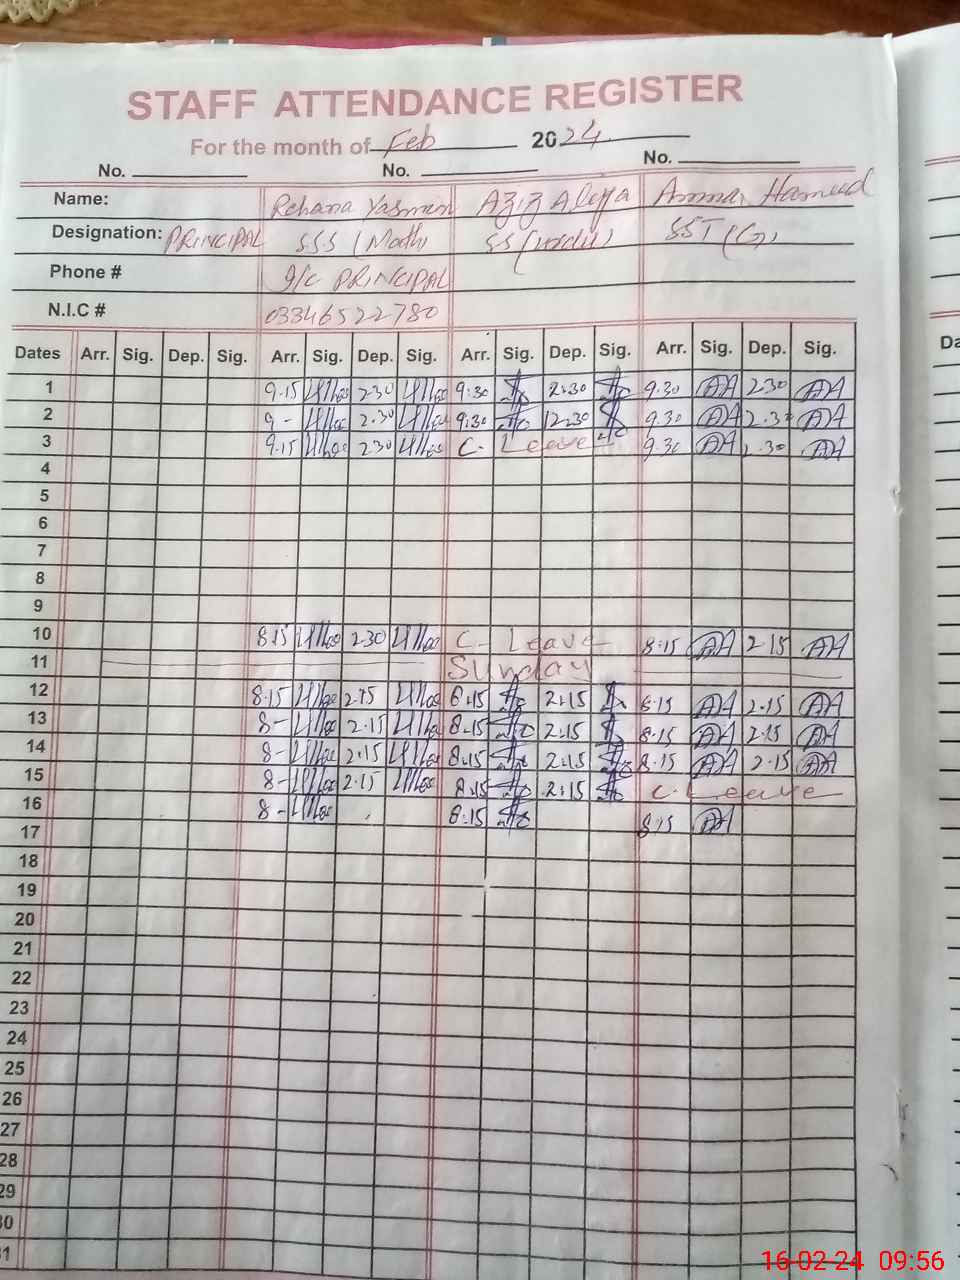 STAFF ATTENDANCE REGISTER
For the month of Feb 2024
No. No. No.
Name: Rehana Yasmin Aziz
Designation: PRINCIPAL SSS (Math) SS (Urdu) SST (G)
Phone # I/C PRINCIPAL
N.I.C # 03346522780
Dates Arr. Sig. Dep. Sig. Arr. Sig. Dep. Sig. Arr. Sig. Dep. Sig. Arr. Sig. Dep. Sig.
1 9.15 2.30 9:30 2:30 9.30 AA 2.30 AA
2 9- 2.30 9:30 12.30 9.30 AA 2.30 AA
3 9.15 2.30 C. Leave 9.30 AA 2.30 AA
4
5
6
7
8
9
10 8.15 2.30 C- Leave 8.15 AA 2.15 AA
11 Sunday
12 8.15 2.15 8:15 2:15 8.15 AA 2.15 AA
13 8- 2.15 8:15 2:15 8.15 AA 2.15 AA
14 8- 2.15 8:15 2:15 8.15 AA 2.15 AA
15 8- 2.15 8:15 2:15 C. Leave
16 8- 8:15 8.15 AA
17
18
19
20
21
22
23
24
25
26
27
28
29
30
31
Da
16-02-24 09:56